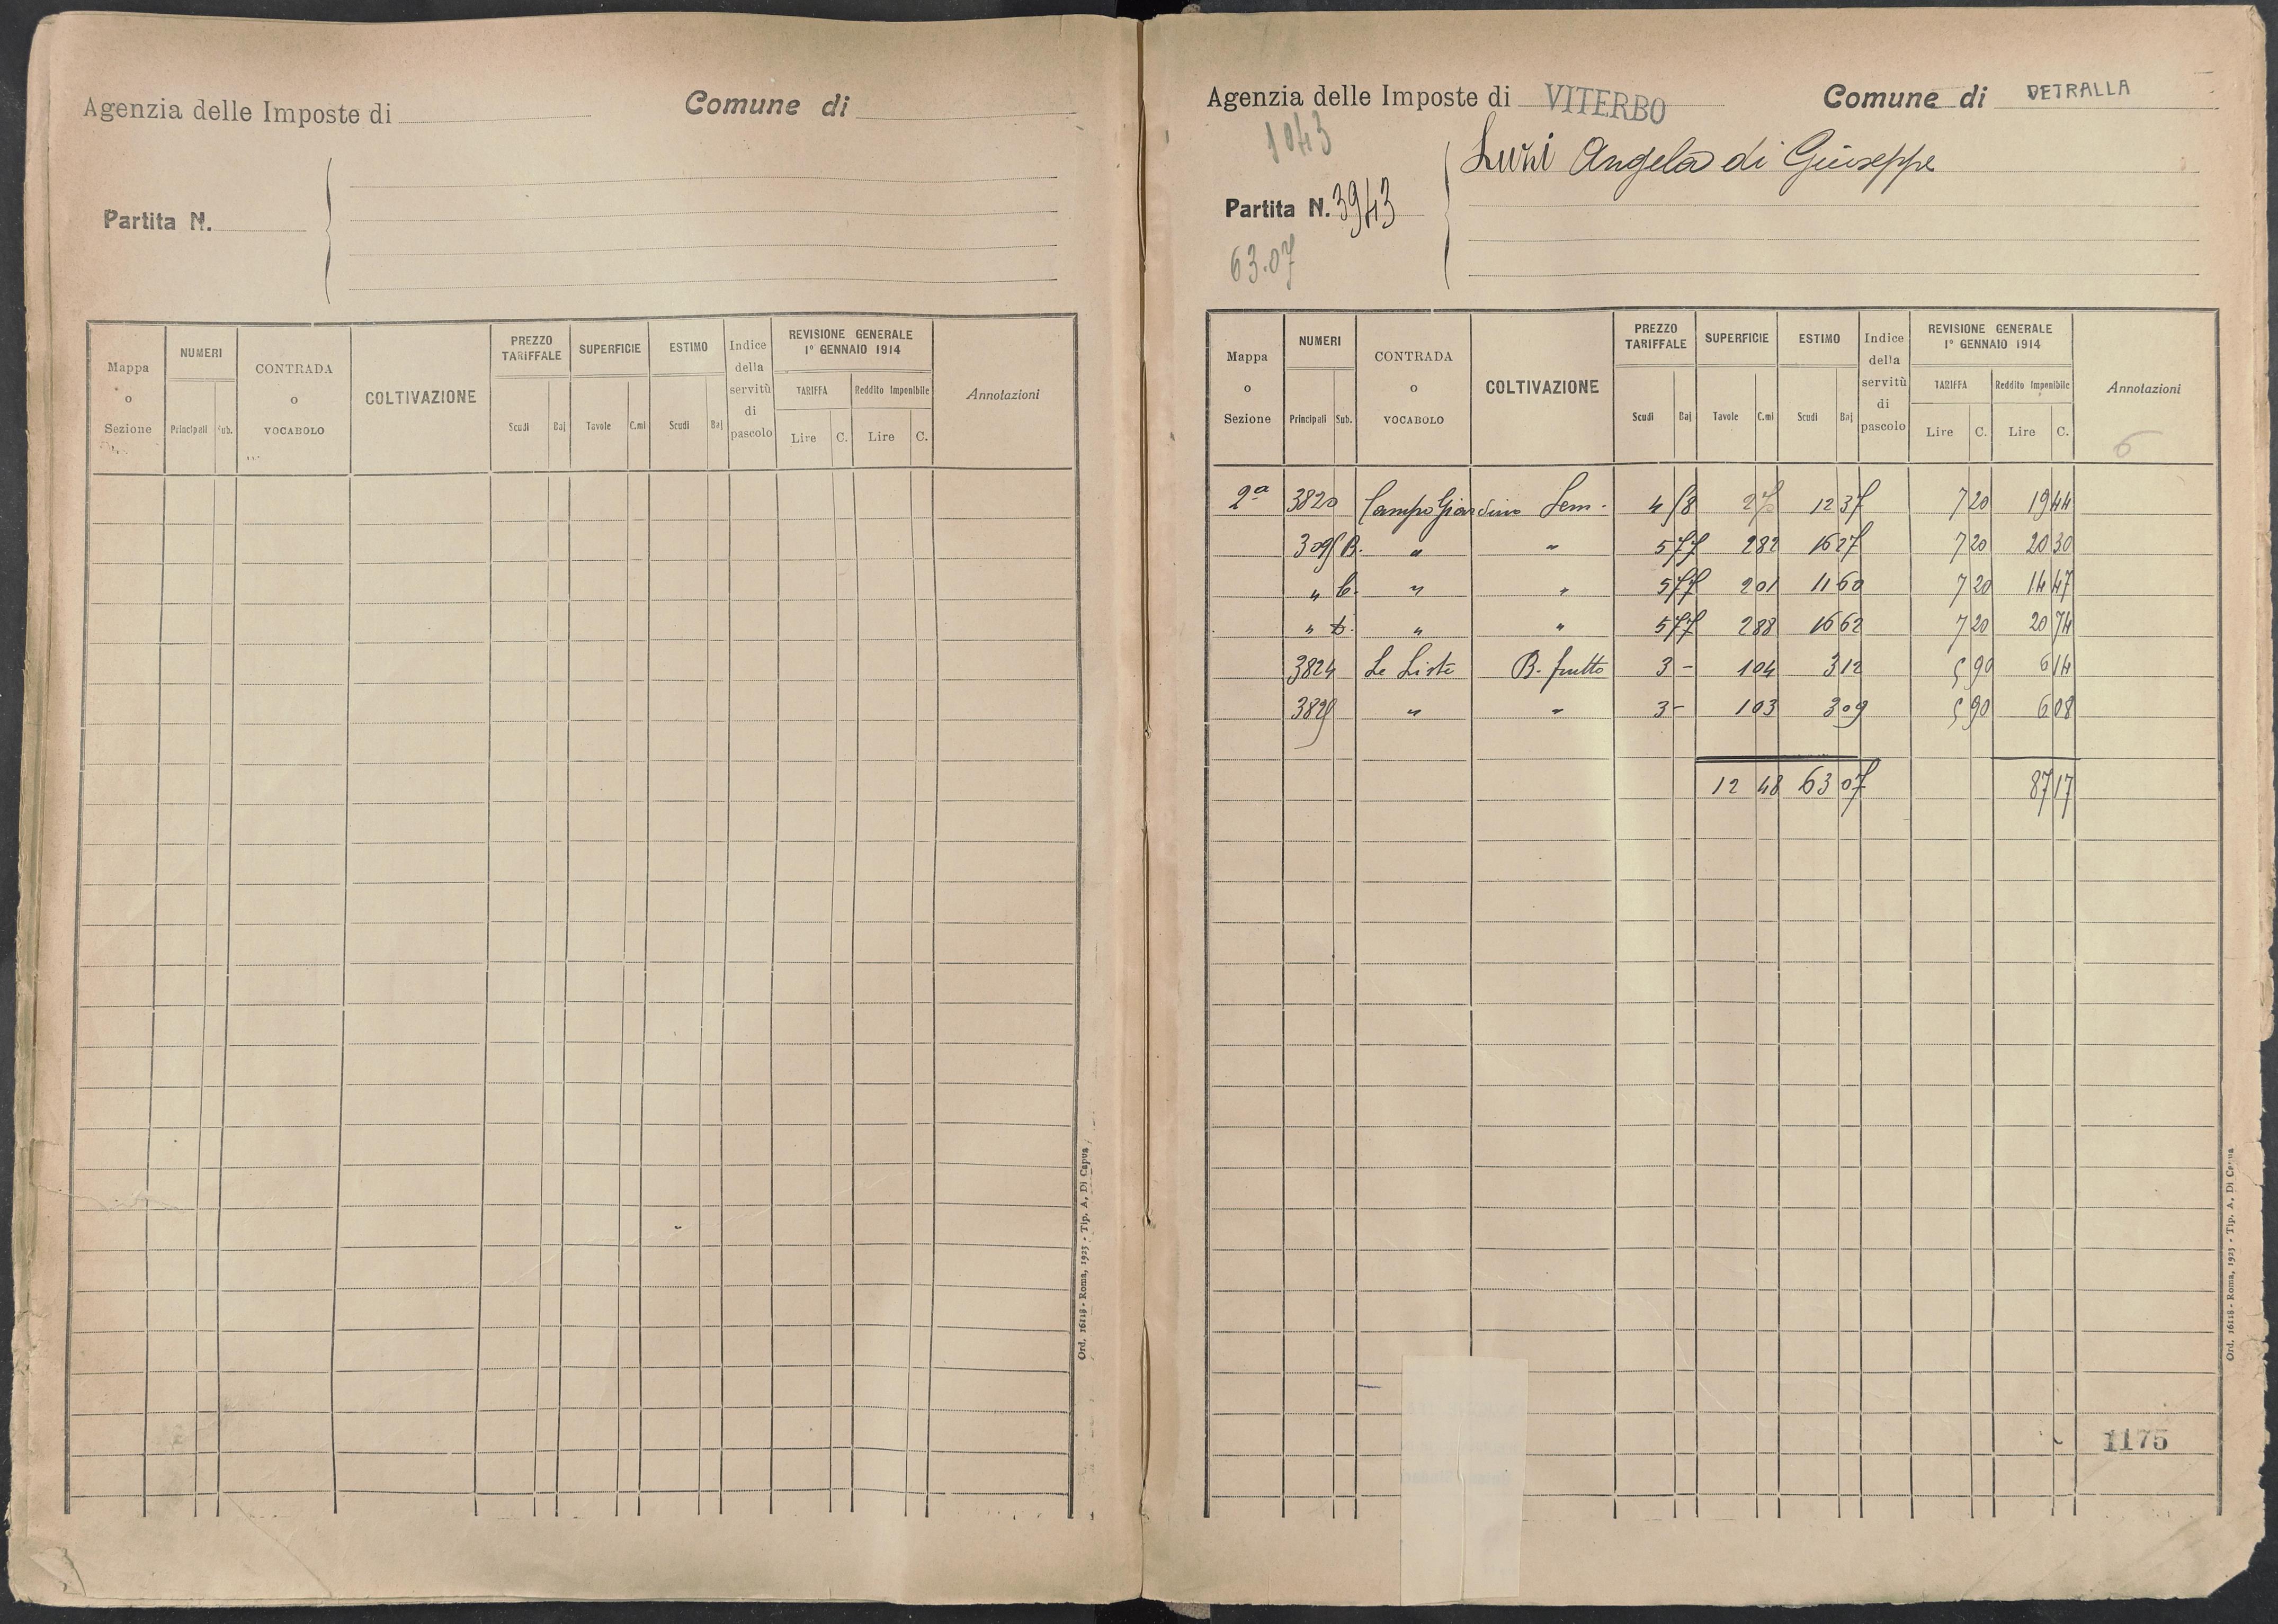 Agenzia delle Imposte di
Comune di
Partita N.
Mappa o Sezione
NUMERI
Principali
Sub.
CONTRADA o VOCABOLO
COLTIVAZIONE
PREZZO TARIFFALE
Scudi
Baj
SUPERFICIE
Tavole
C.mi
ESTIMO
Scudi
Baj
Indice della servitù di pascolo
REVISIONE GENERALE
1° GENNAIO 1914
TARIFFA
Reddito Imponibile
Lire C. Lire C.
Annotazioni
Ord. 16118 - Roma, 1923 - Tip. A. Di Capua
Agenzia delle Imposte di VITERBO
Comune di VETRALLA
1043
Angela di Giuseppe
Partita N. 3943
63.07
Mappa o Sezione
NUMERI
Principali
Sub.
CONTRADA o VOCABOLO
COLTIVAZIONE
PREZZO TARIFFALE
Scudi
Baj
SUPERFICIE
Tavole
C.mi
ESTIMO
Scudi
Baj
Indice della servitù di pascolo
REVISIONE GENERALE
1° GENNAIO 1914
TARIFFA
Reddito Imponibile
Lire C. Lire C.
Annotazioni
6
2ª 3820 Campo Giardino Sem. 4 58 2 70 12 37 7 20 19 44
B. " " 5 77 2 82 16 27 7 20 20 30
" C. " " 5 77 2 01 11 60 7 20 14 47
" " " 5 77 2 88 16 62 7 20 20 74
3824 Le Liste B. frutto 3 - 1 04 3 12 5 90 6 14
" " 3 - 1 03 3 09 5 90 6 08
12 48 63 07 87 17
1175
Ord. 16118 - Roma, 1923 - Tip. A. Di Capua